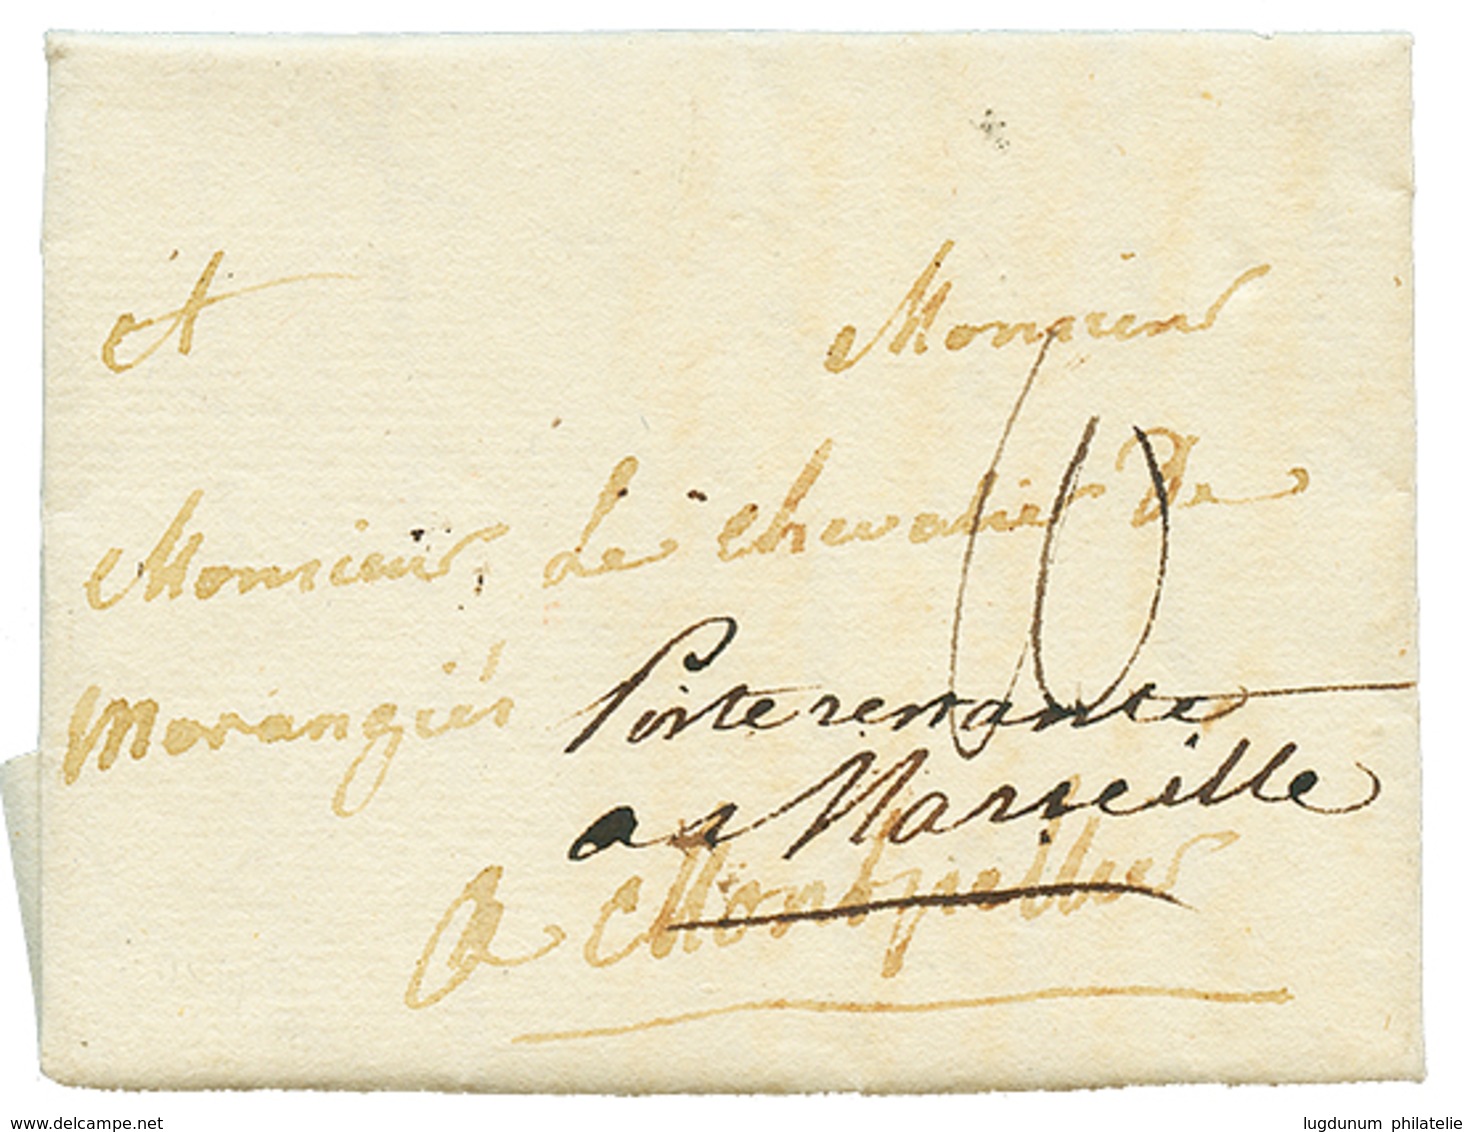 A Monsieur
Monsieur Le Chevalier De
Morangiés
Poste restante
a Marseille
A Montpellier
www.delcampe.net
lugdunum philatelie